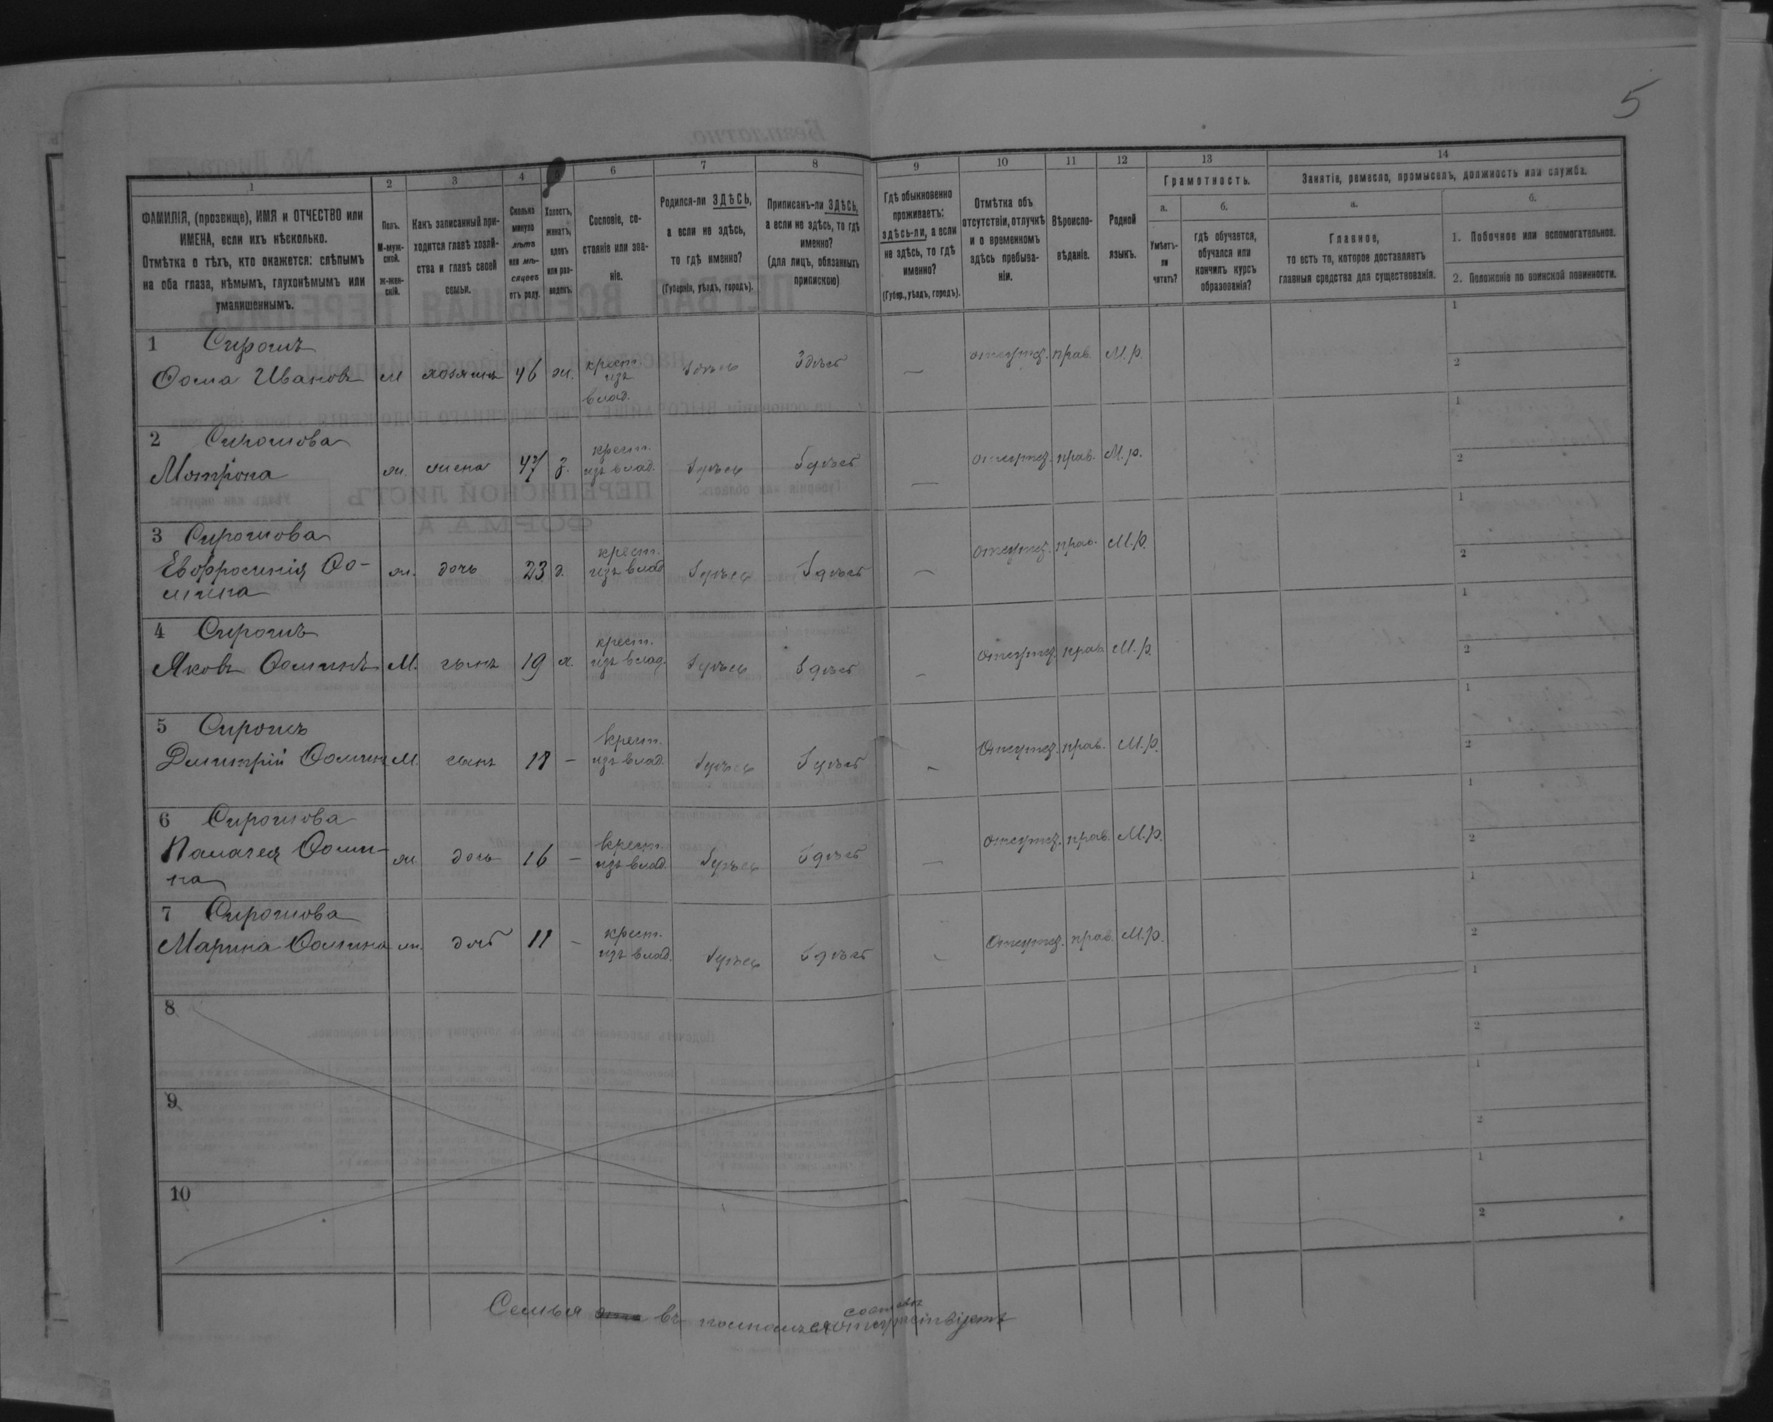 5
1
2
3
4
6
7
8
9
10
11
12
13
14
ФАМИЛІЯ, (прозвище), ИМЯ и ОТЧЕСТВО или
ИМЕНА, если ихъ нѣсколько.
Отмѣтка о тѣхъ, кто окажется: слѣпымъ
на оба глаза, нѣмымъ, глухонѣмымъ или
умалишеннымъ.
Полъ.
М-муж-
ской.
Ж-жен-
скій.
Какъ записанный при-
ходится главѣ хозяй-
ства и главѣ своей
семьи.
Сколько
минуло
лѣтъ
или мѣ-
сяцевъ
отъ роду.
Холостъ,
женатъ,
вдовъ
или раз-
веденъ.
Сословіе, со-
стояніе или зва-
ніе.
Родился-ли ЗДѢСЬ,
а если не здѣсь,
то гдѣ именно?
(Губернія, уѣздъ, городъ).
Приписанъ-ли ЗДѢСЬ,
а если не здѣсь, то гдѣ
именно?
(для лицъ, обязанныхъ
припискою)
Гдѣ обыкновенно
проживаетъ:
здѣсь-ли, а если
не здѣсь, то гдѣ
именно?
(Губер., уѣздъ, городъ).
Отмѣтка объ
отсутствіи, отлучкѣ
и о временномъ
здѣсь пребыва-
ніи.
Вѣроиспо-
вѣданіе.
Родной
языкъ.
Грамотность.
а.
Умѣетъ-
ли
читать?
б.
гдѣ обучается,
обучался или
кончилъ курсъ
образованія?
Занятіе, ремесло, промыселъ, должность или служба.
а.
Главное,
то есть то, которое доставляетъ
главныя средства для существованія.
б.
1. Побочное или вспомогательное.
2. Положеніе по воинской повинности.
1 Сиротъ
Ѳома Ивановъ м хозяинъ 46 ж. крест. изъ влад. здѣсь здѣсь — отсутст. прав. М.р.
2 Сиротова
Мотрона ж. жена 47 з. крест. изъ влад. здѣсь здѣсь — отсутст. прав. М.р.
3 Сиротова
Евфросинія Ѳо-
мина ж. дочь 23 д. крест. изъ влад здѣсь здѣсь — отсутст. прав. М.р.
4 Сиротъ
Яковъ Ѳоминъ М. сынъ 19 х. крест. изъ влад. здѣсь здѣсь — отсутст. прав. М.р.
5 Сиротъ
Дмитрій Ѳомин М. сынъ 18 — крест. изъ влад. здѣсь здѣсь — отсутст. прав. М.р.
6 Сиротова
Ѳоми-
на ж. дочь 16 — крест. изъ влад. здѣсь здѣсь — отсутст. прав. М.р.
7 Сиротова
Марина Ѳомина ж. дочь 11 — крест. изъ влад. здѣсь здѣсь — отсутст. прав. М.р.
8
9
10
составѣ
Семья въ полномъ отсутствуетъ